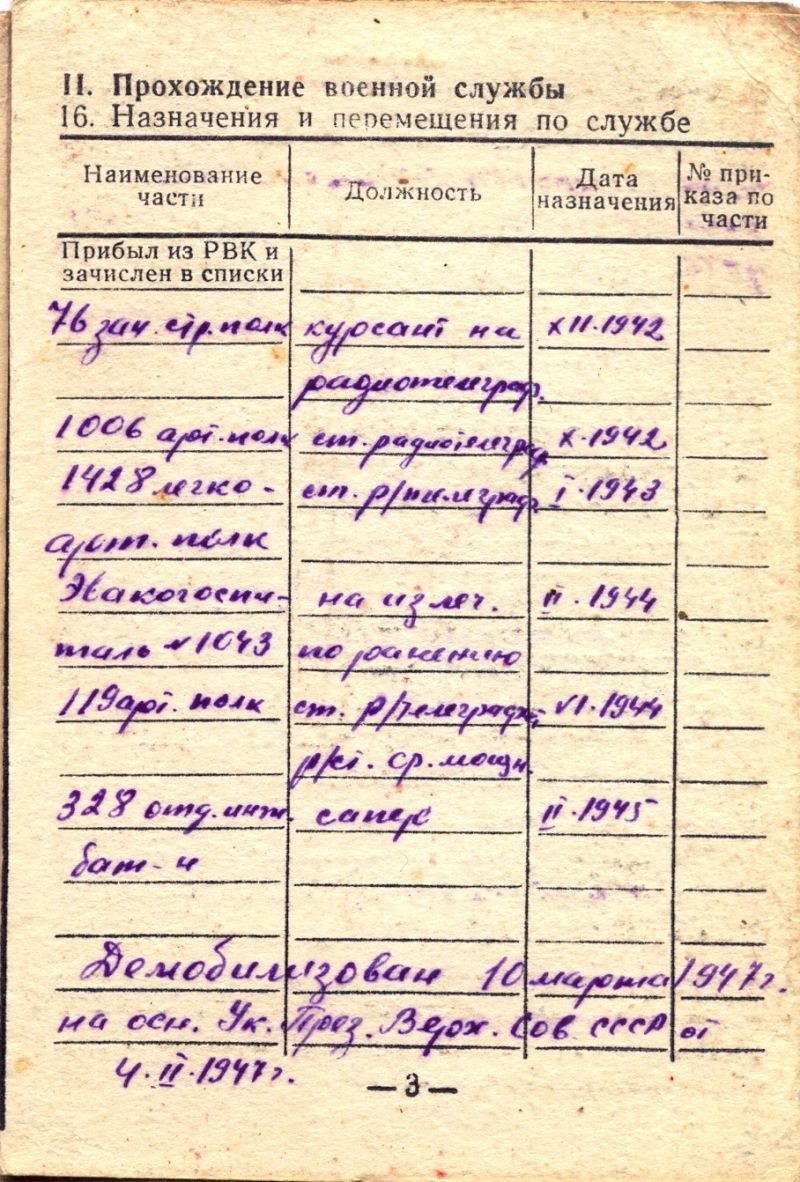 II. Прохождение военной службы
16. Назначения и перемещения по службе
Наименование части
Должность
Дата назначения
№ приказа по части
Прибыл из РВК и
зачислен в списки
76 зап. стр. полк курсант на XII.1942
радиотелеграф.
1006 арт. полк ст. радиотелеграф X.1942
1428 легко- ст. р/телеграф I.1943
арт. полк
Эвакогоспи- на излеч. II.1944
таль №1043 по ранению
119 арт. полк ст. р/телеграфист VI.1944
р/ст. ср. мощн.
328 отд. инж. сапер II.1945
бат-н
Демобилизован 10 марта 1947г.
на осн. Ук. През. Верх. Сов СССР от
4.II.1947г.
— 3 —